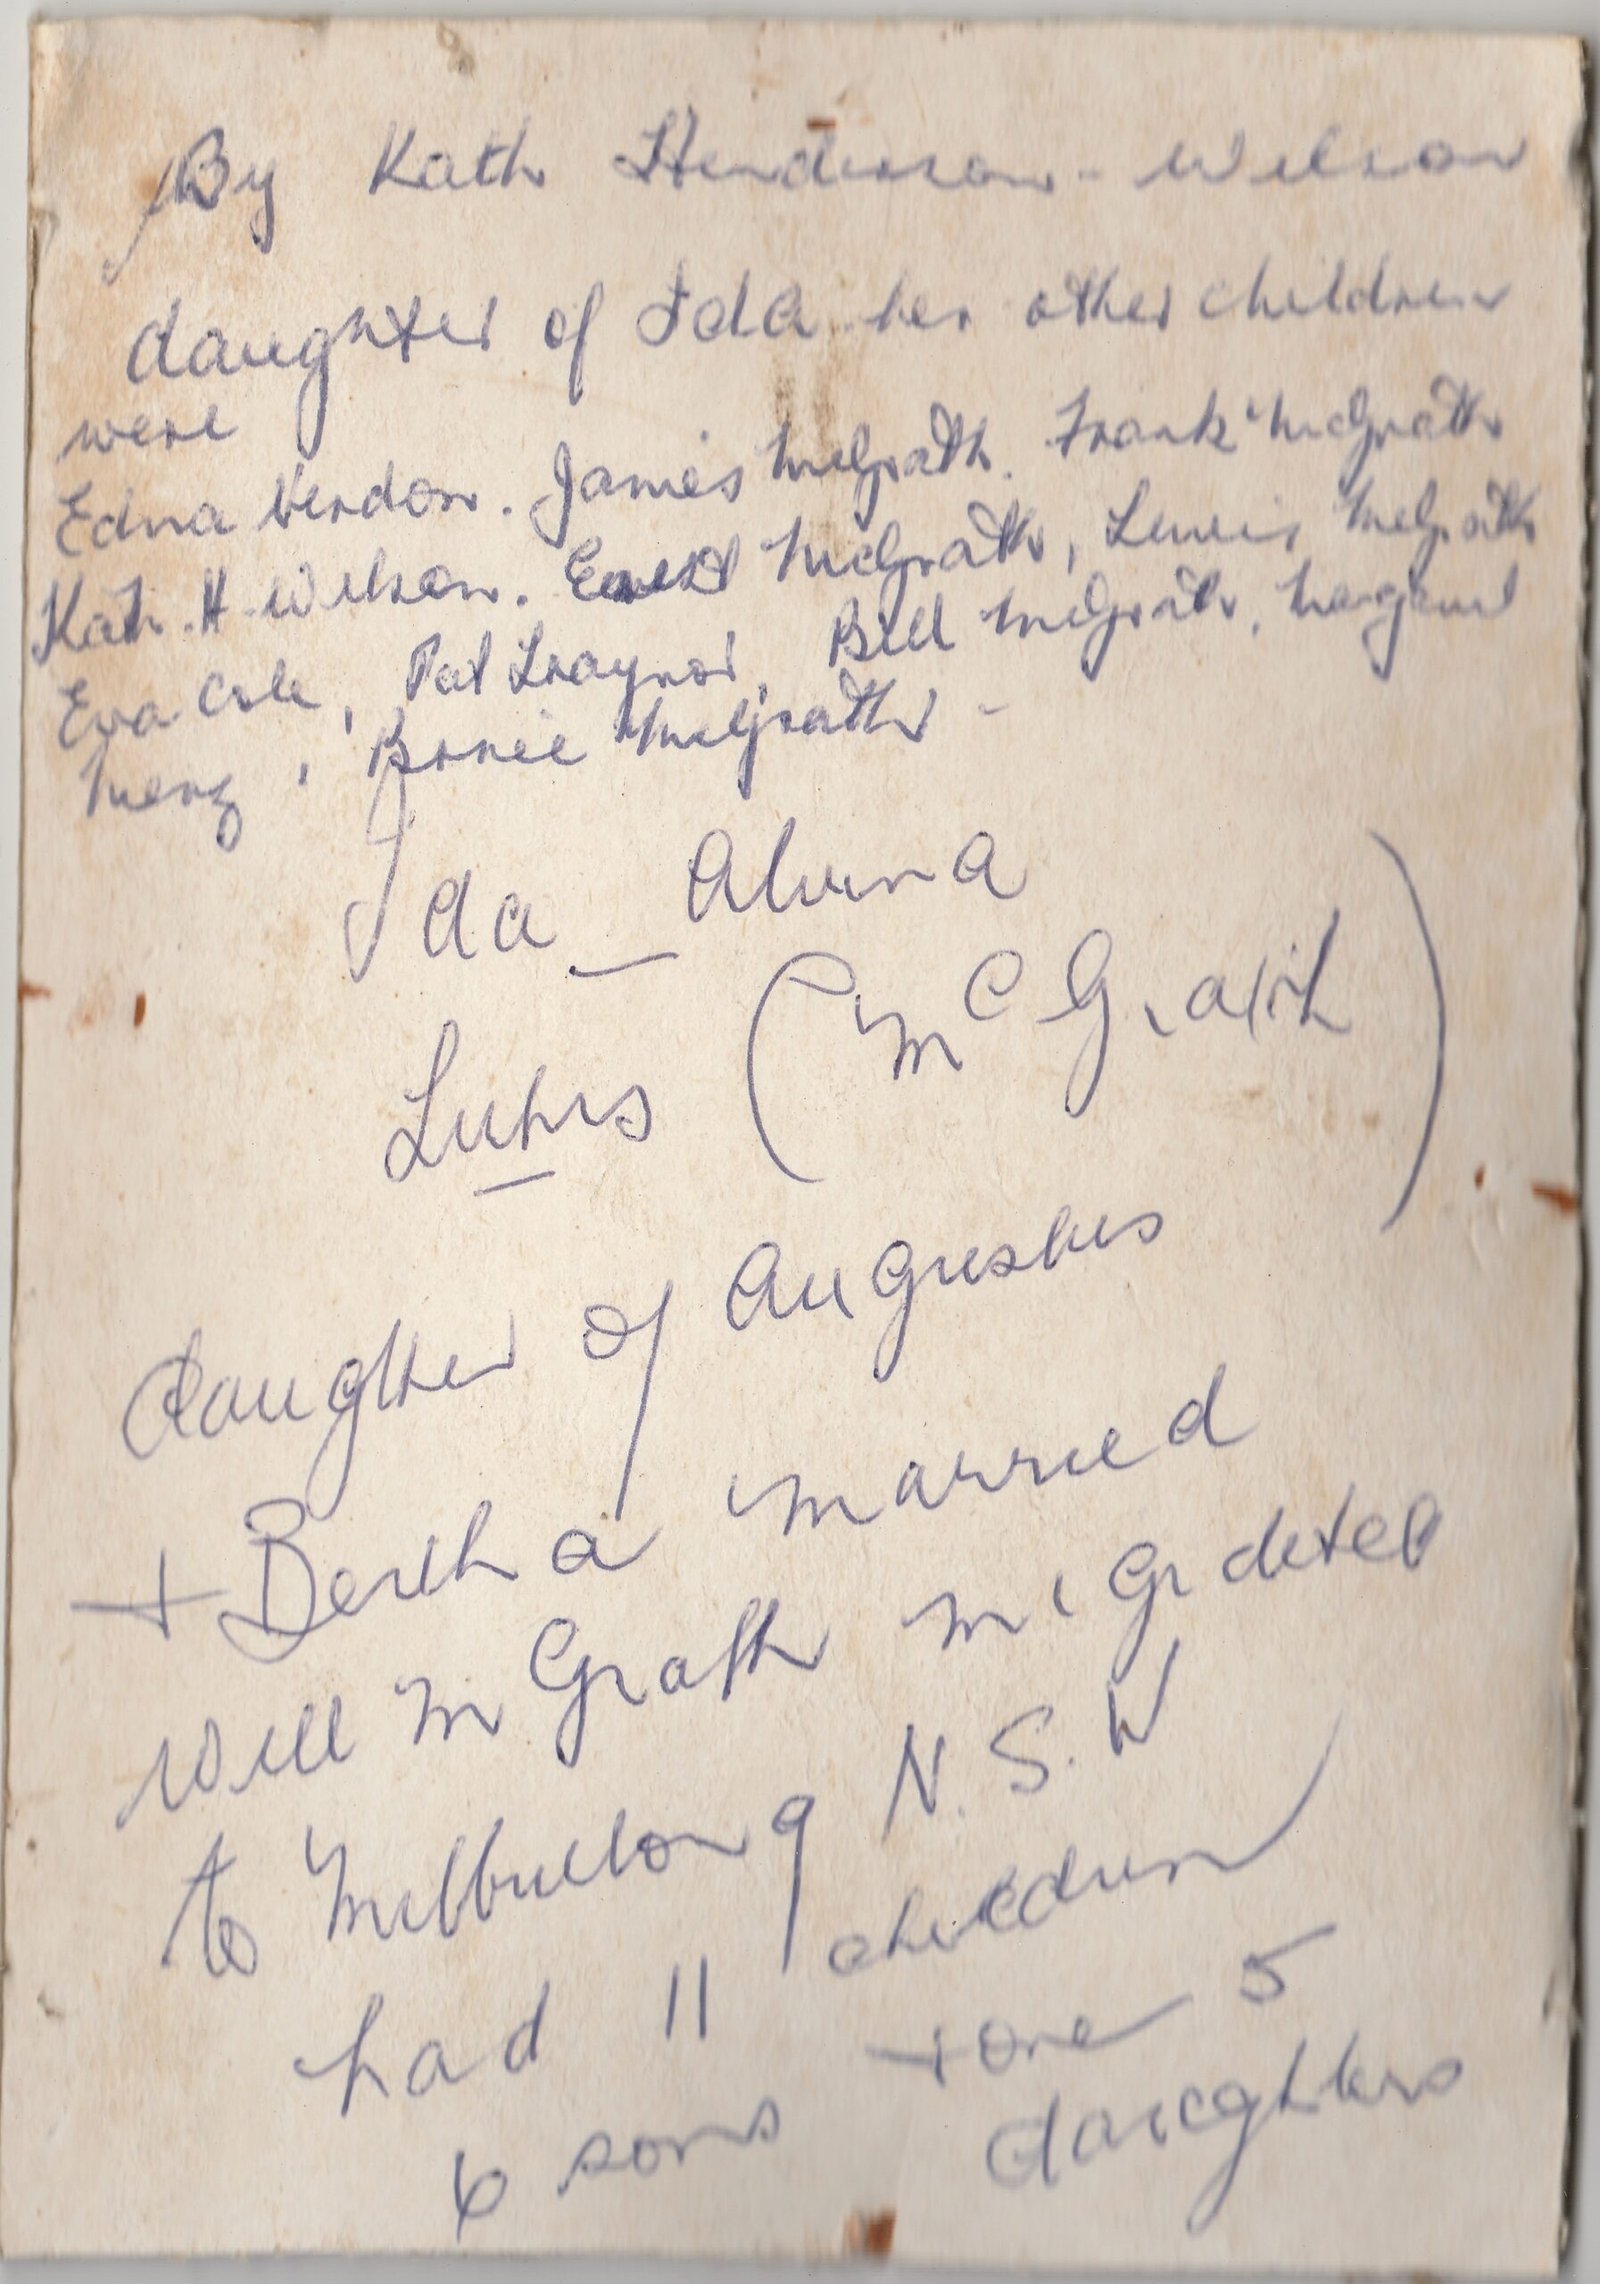 By Kath Henderson-Wilson
daughter of Ida her other children
were
Edna Verdon. James McGrath. Frank McGrath
Kath. H-Wilson. Ernest McGrath, Lewis McGrath
Eva Cole, Pat Traynor, Bill McGrath, Margaret
Merz, McGrath -
Ida - Alvina
Luhrs (McGrath)
daughter of Augustus
+ Bertha married
Will McGrath
to Milbulong N.S.W
had 11 children
6 sons + one 5
daughters